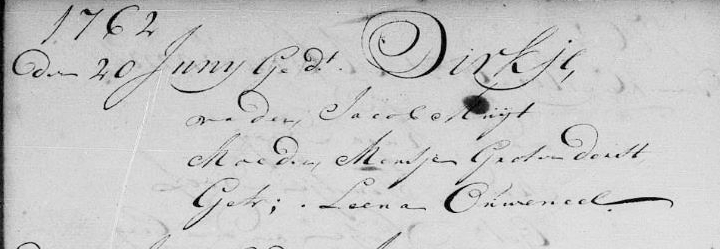 1762
den 20 Juny Gedt. Dirkje,
vader, Jacob Kuijt
Moeder, Mensje Grotendorst
Getr; . Leena Onweneel.